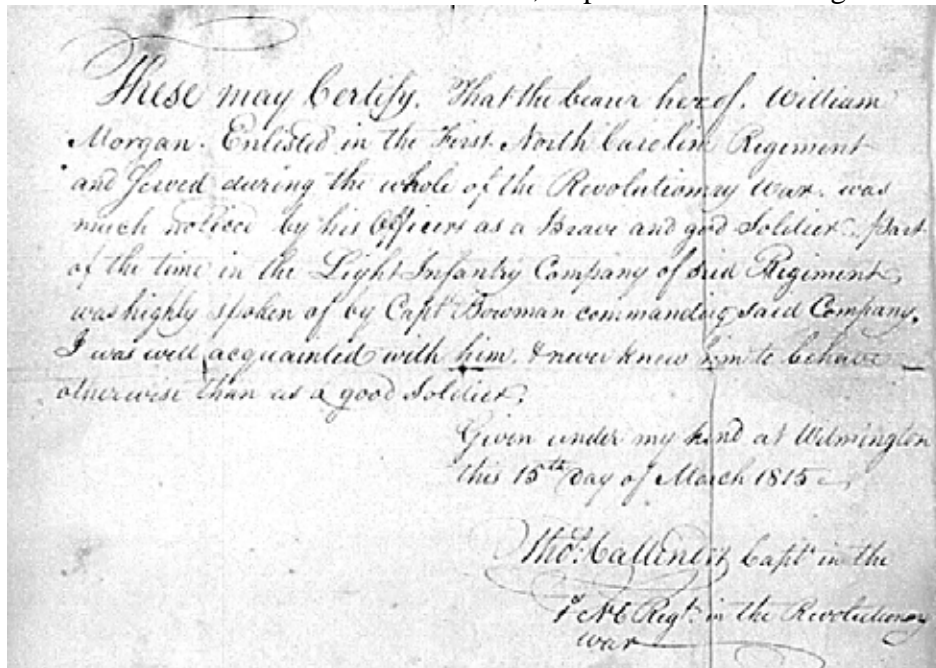 These may Certify. That the bearer hereof. William
Morgan. Enlisted in the First North Carolin Regiment
and Served during the whole of the Revolutionary War. was
much noticed by his Officers as a Brave and good Soldier. Part
of the time in the Light Infantry Company of said Regiment,
was highly spoken of by Capt Bowman commanding said Company.
I was well acquainted with him. & never knew him to behave
otherwise than as a good Soldier,
Given under my hand at Wilmington
this 15th Day of March 1815
Thos. Callender Capt in the
1st NC Regt. in the Revolutionary
war